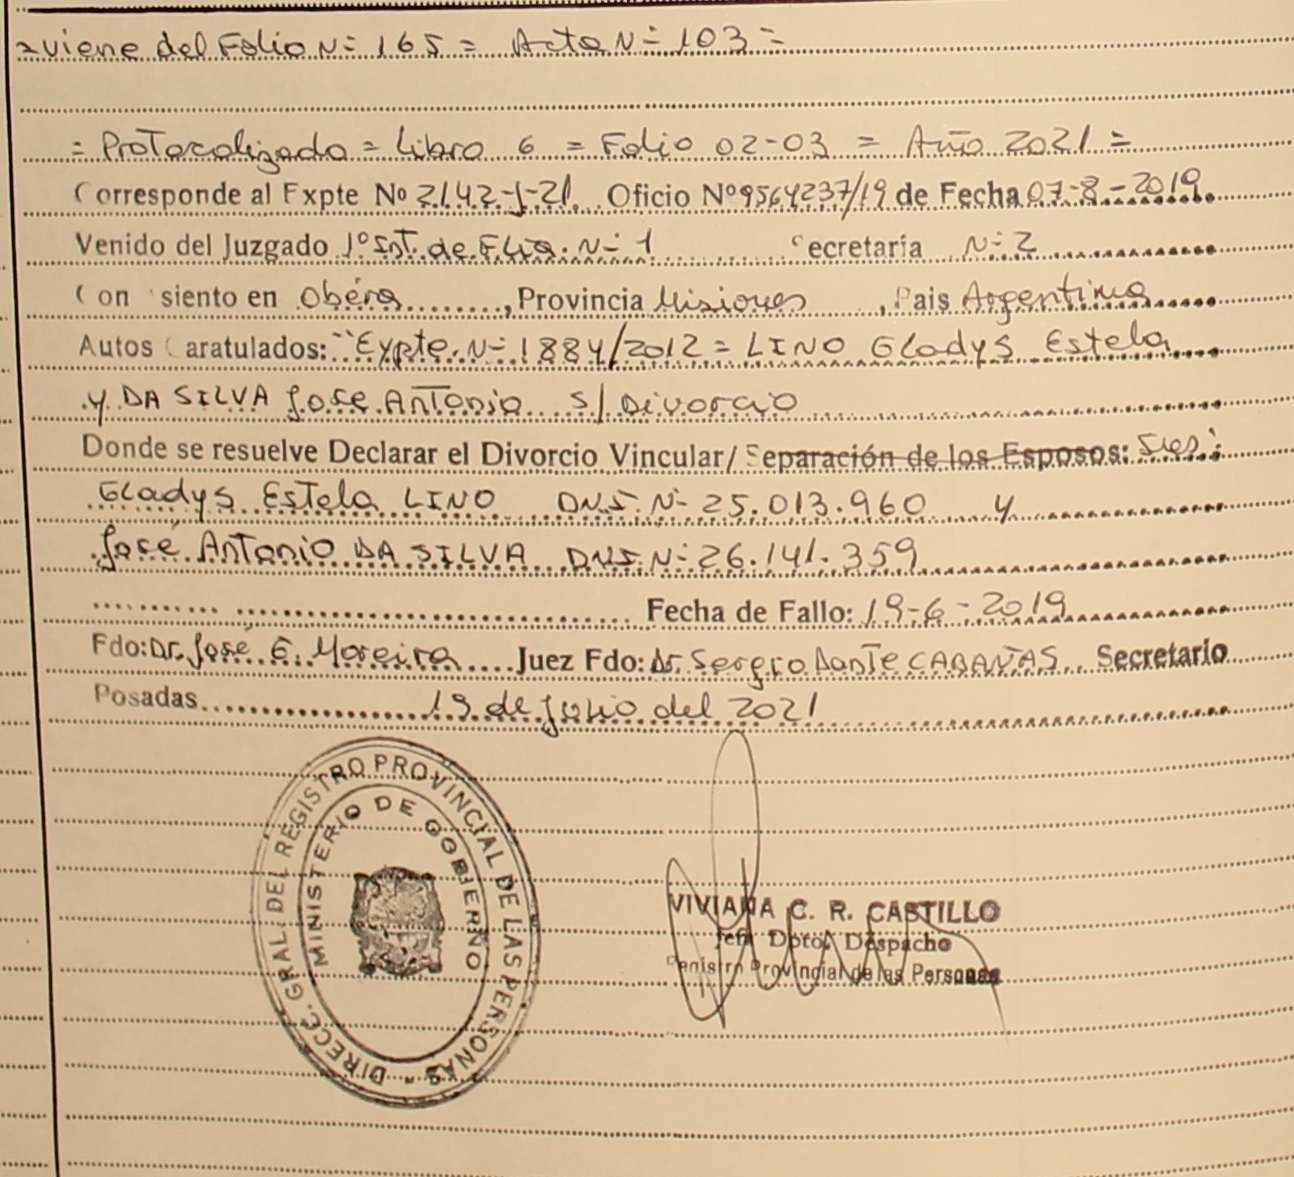 =viene del Folio N= 165 = Acta N= 103 =
= Protocolizado = Libro 6 = Folio 02-03 = Año 2021 =
Corresponde al Expte Nº 2142-J-21. Oficio Nº 9564237/19 de Fecha 07-8-2019.
Venido del Juzgado 1º Inst. de Flia. N= 1 Secretaría N= 2
Con siento en Oberá, Provincia Misiones, Pais Argentina
Autos Caratulados: "Expte. N= 1884/2012 = LINO Gladys Estela
y DA SILVA José Antonio s/ Divorcio
Donde se resuelve Declarar el Divorcio Vincular/ Separación de los Esposos: Sres:
Gladys Estela LINO DNI. N= 25.013.960 y
José Antonio DA SILVA DNI. N= 26.141.359
Fecha de Fallo: 19-6-2019
Fdo: Dr. José G. Moreira Juez Fdo: Dr. Sergio Dante CABAÑAS Secretario
Posadas 19 de Julio del 2021
DIRECC. GRAL. DEL REGISTRO PROVINCIAL DE LAS PERSONAS -
MINISTERIO DE GOBIERNO
VIVIANA C. R. CASTILLO
Jefa Dpto. Despacho
Registro Provincial de las Personas